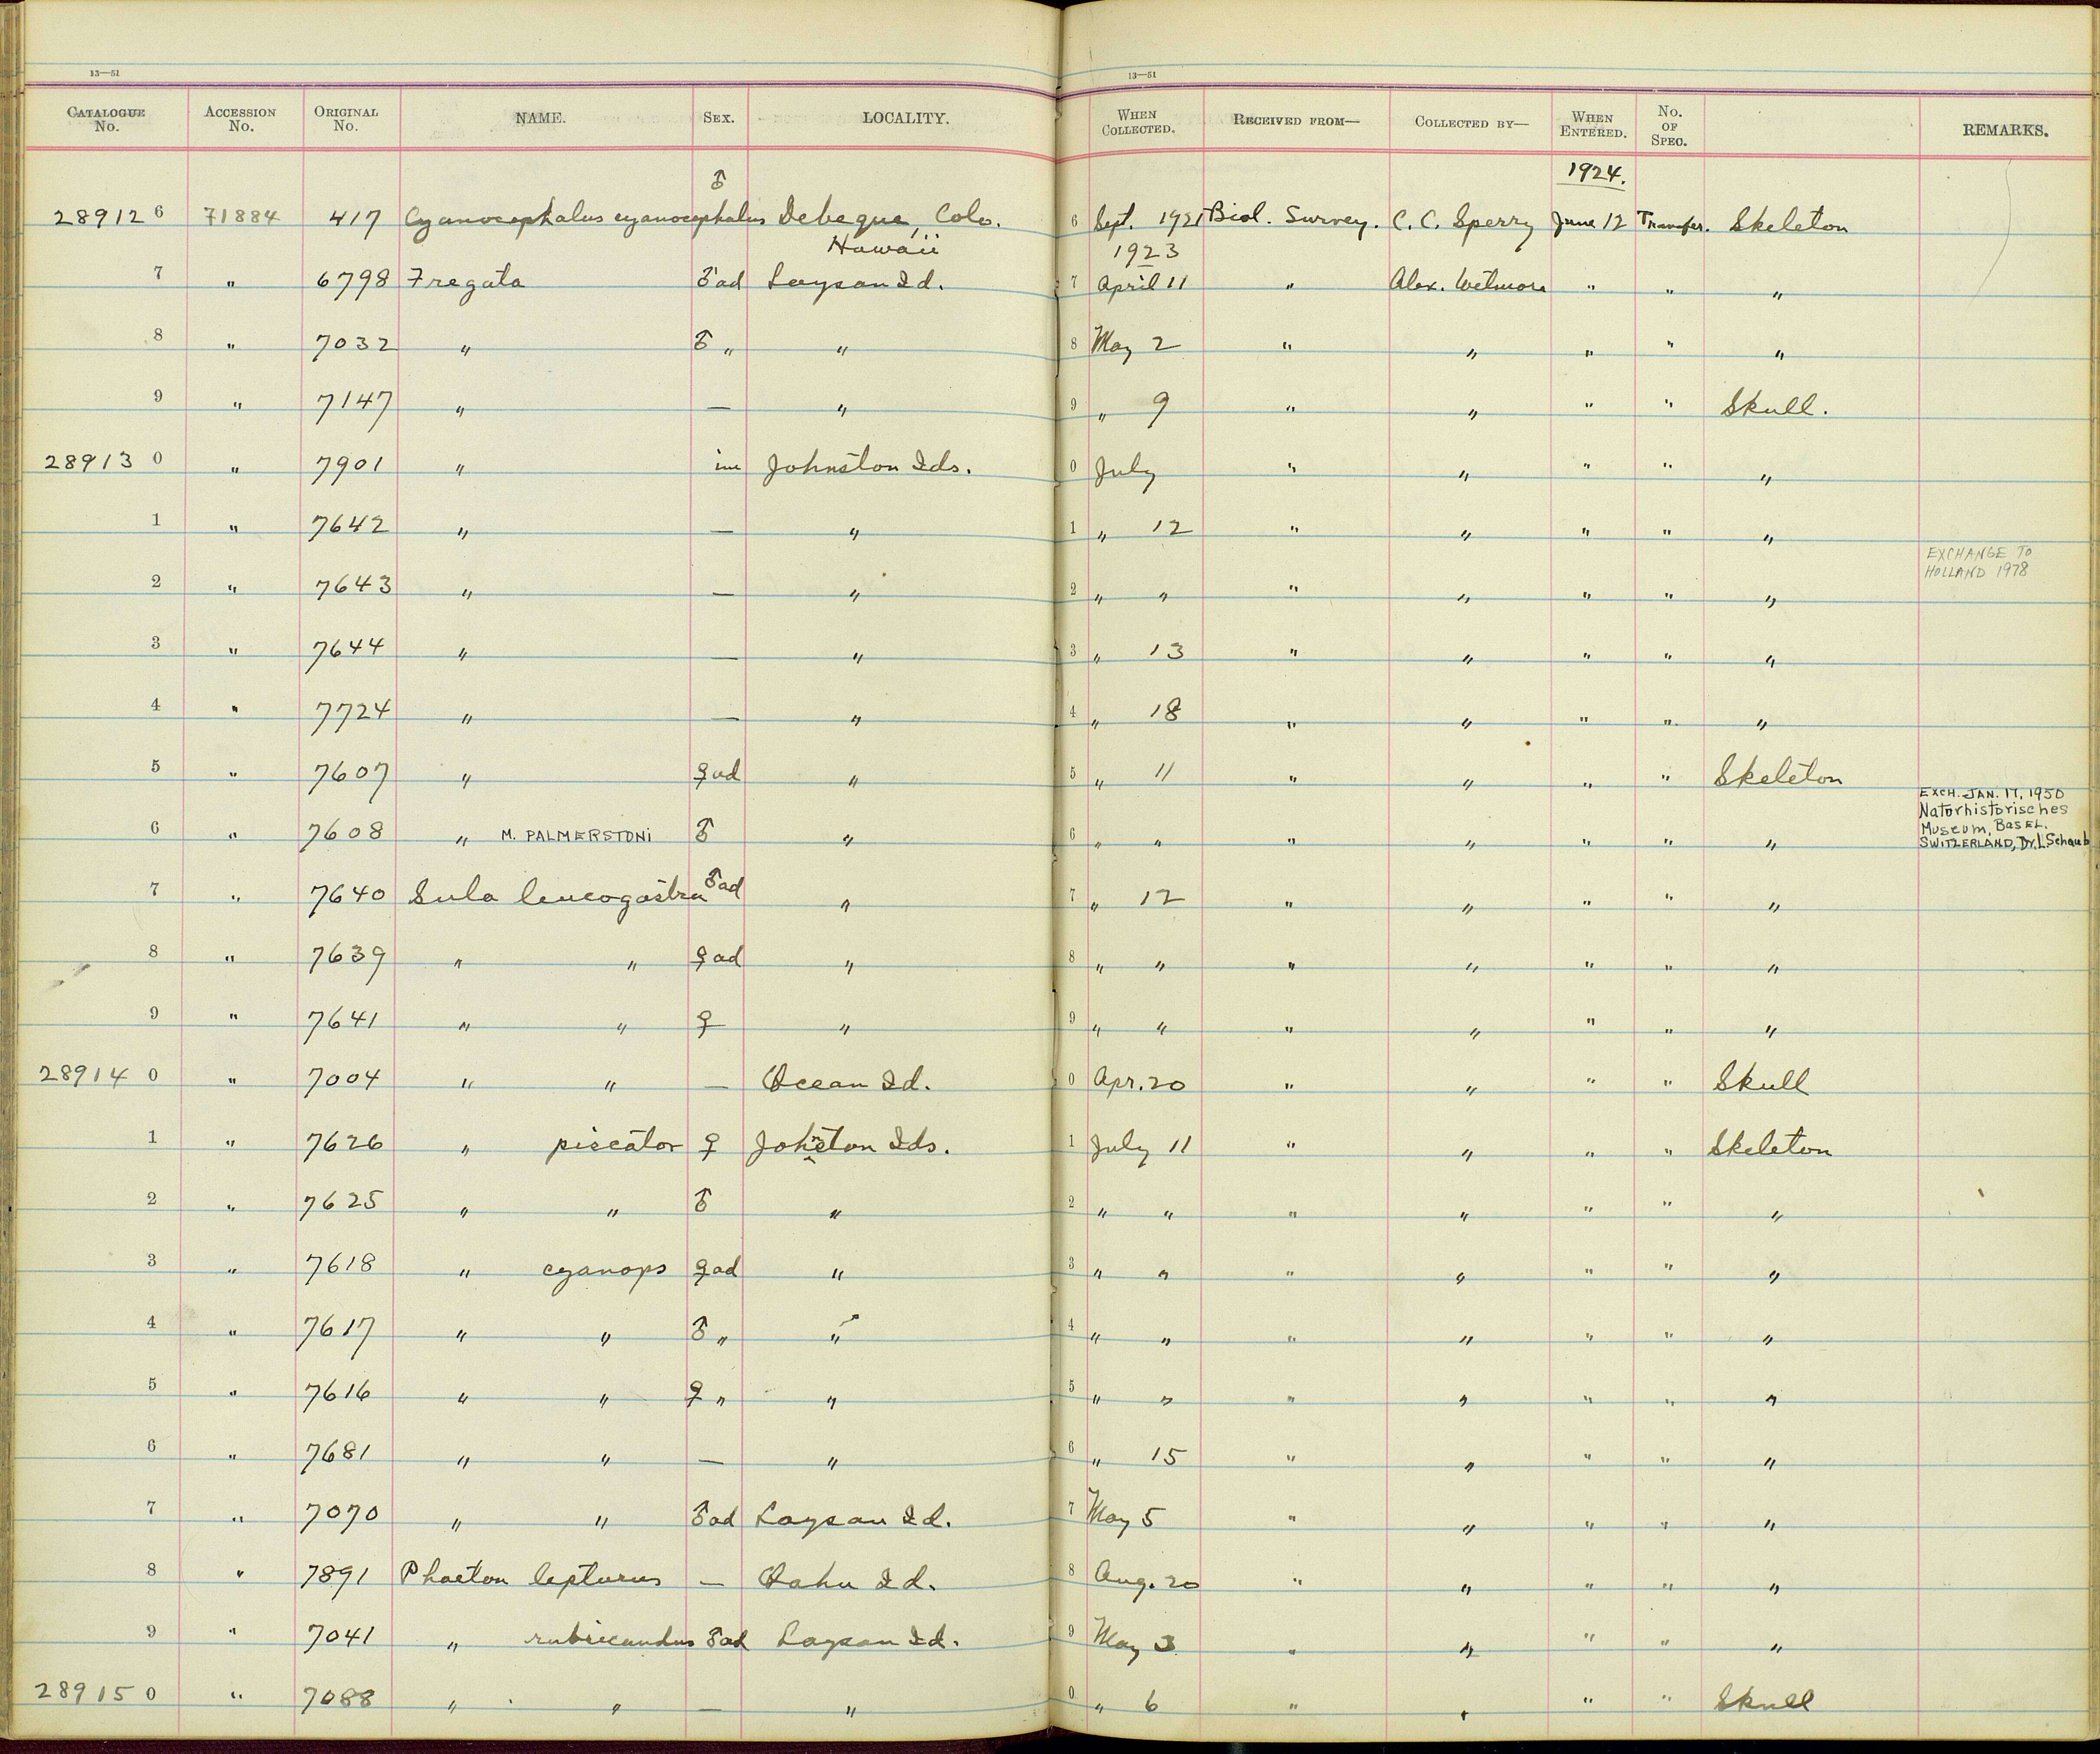 13—51
13—51
CATALOGUE No. ACCESSION No. ORIGINAL No. NAME. SEX. LOCALITY. WHEN COLLECTED. RECEIVED FROM— COLLECTED BY— WHEN ENTERED. No. OF SPEC. REMARKS.
♂ 1924.
28912 6 71884 417 Cyanocephalus cyanocephalus Debeque, Colo. 6 Sept. 1921 Biol. Survey. C. C. Sperry June 12 Transfer. Skeleton
Hawaii 1923
7 " 6798 Fregata ♂ ad Laysan Id. 7 April 11 " Alex. Wetmore " " "
8 " 7032 " ♂ " " 8 May 2 " " " " "
9 " 7147 " — " 9 " 9 " " " " Skull.
28913 0 " 7901 " im Johnston Ids. 0 July " " " " "
1 " 7642 " — " 1 " 12 " " " " "
EXCHANGE TO
HOLLAND 1978
2 " 7643 " — " 2 " " " " " " "
3 " 7644 " — " 3 " 13 " " " " "
4 " 7724 " — " 4 " 18 " " " " "
5 " 7607 " ♀ ad " 5 " 11 " " " " Skeleton
EXCH. JAN. 17, 1950
Naturhistorisches
Museum, BASEL.
SWITZERLAND, Dr. L. Schaub
6 " 7608 " M. PALMERSTONI ♂ " 6 " " " " " " "
7 " 7640 Sula leucogastra ♂ ad " 7 " 12 " " " " "
8 " 7639 " " ♀ ad " 8 " " " " " " "
9 " 7641 " " ♀ " 9 " " " " " " "
28914 0 " 7004 " " — Ocean Id. 0 Apr. 20 " " " " Skull
1 " 7626 " piscator ♀ Johnston Ids. 1 July 11 " " " " Skeleton
2 " 7625 " " ♂ " 2 " " " " " " "
3 " 7618 " cyanops ♀ ad " 3 " " " " " " "
4 " 7617 " " ♂ " " 4 " " " " " " "
5 " 7616 " " ♀ " " 5 " " " " " " "
6 " 7681 " " — " 6 " 15 " " " " "
7 " 7070 " " ♂ ad Laysan Id. 7 May 5 " " " " "
8 " 7891 Phaeton lepturus — Oahu Id. 8 Aug. 20 " " " " "
9 " 7041 " rubricundus ♂ ad Laysan Id. 9 May 3 " " " " "
28915 0 " 7088 " " — " 0 " 6 " " " " Skull